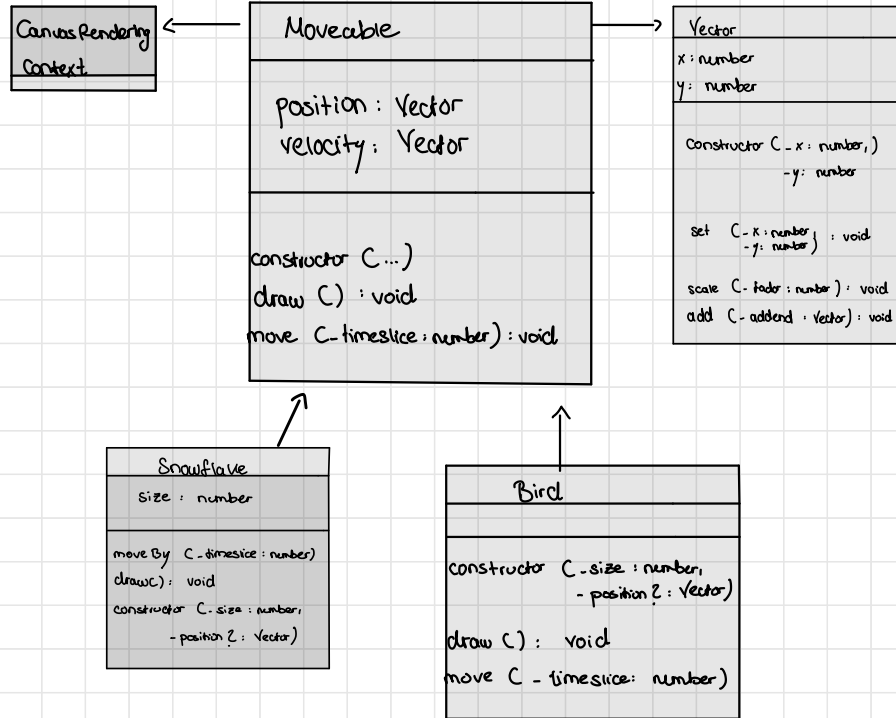 CanvasRendering
Context
Moveable
position : Vector
velocity : Vector
constructor (...)
draw () : void
move (_timeslice : number) : void
Vector
x : number
y : number
constructor (_x : number, )
_y : number
set (_x : number,
_y : number) : void
scale (_factor : number) : void
add (_addend : Vector) : void
Snowflake
size : number
moveBy (_timeslice : number)
draw() : void
constructor (_size : number,
_position? : Vector)
Bird
constructor (_size : number,
_position? : Vector)
draw () : void
move (_timeslice : number)